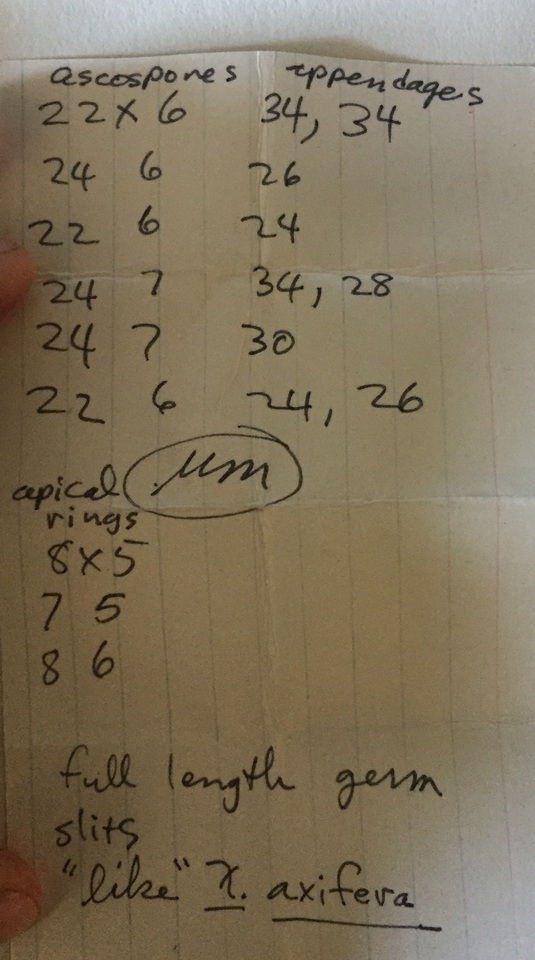 ascospores appendages
22 x 6 34, 34
24 6 26
22 6 24
24 7 34, 28
24 7 30
22 6 24, 26
apical µm
rings
8 x 5
7 5
8 6
full length germ
slits
"like" X. axifera